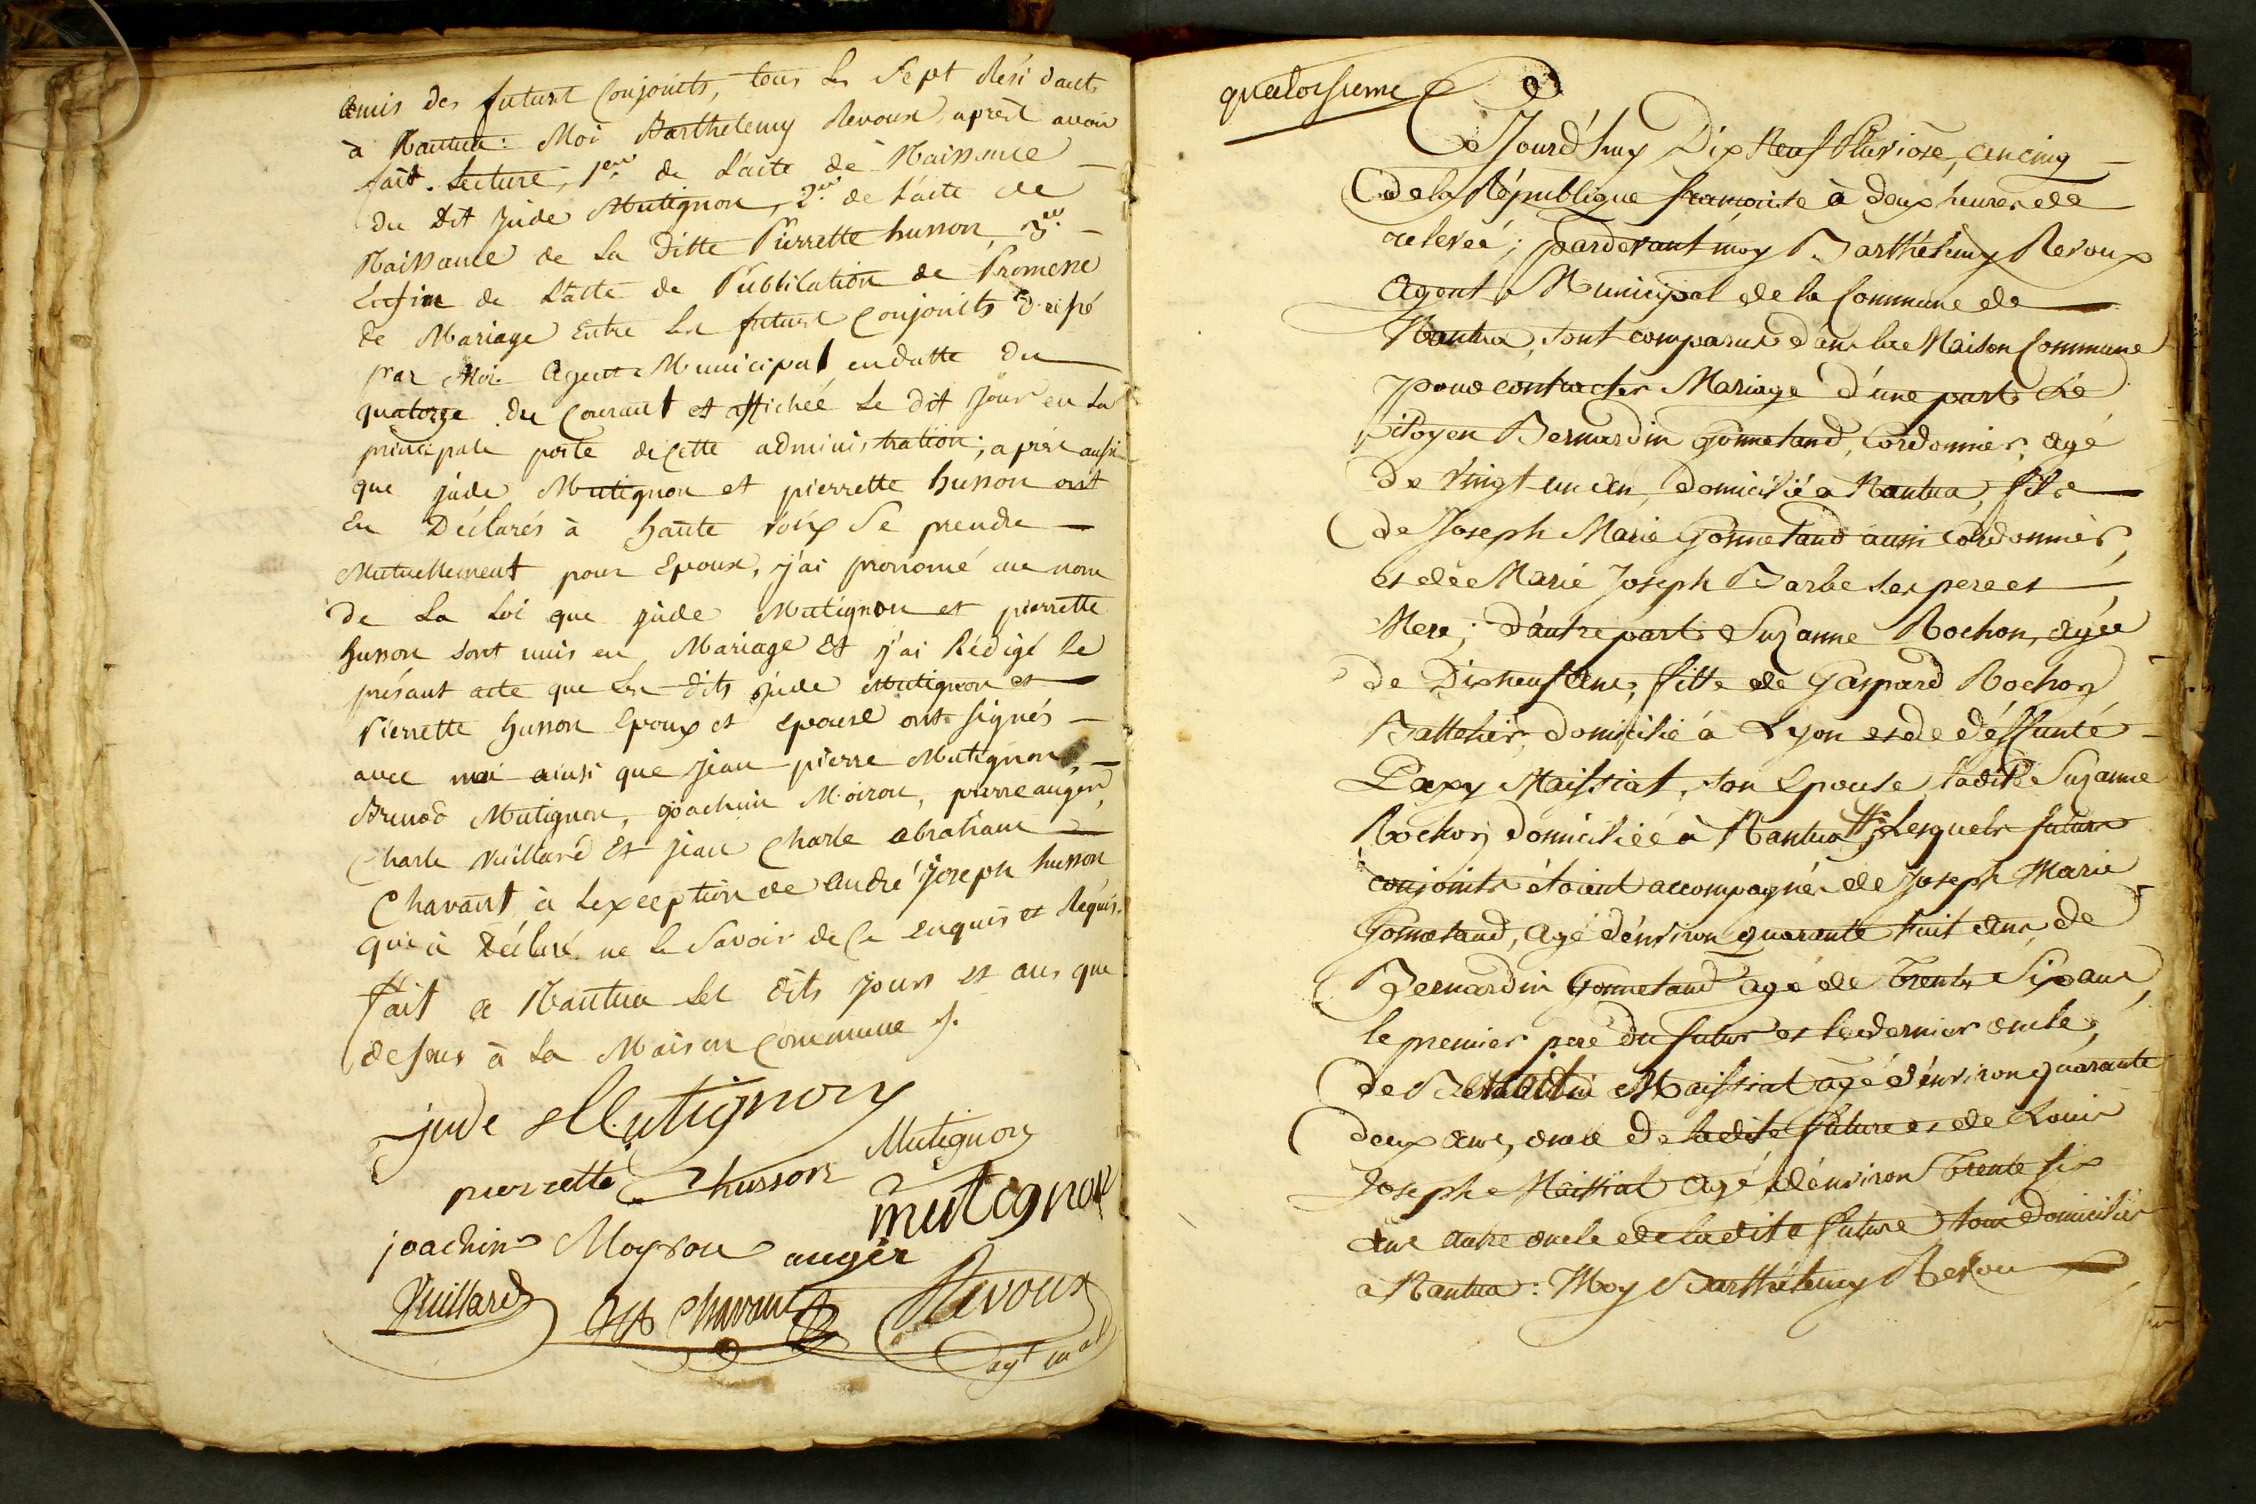 amis des futurst Conjoints, tous les Sept Rési dants
à Nantua: Moi Barthelemy Revoux, aprèst avoir
fait. Lecture, 1er. de l'acte de Naissance —
du dit Jude Mutignon, 2me. de l'acte de
Naissance de la ditte Pierrette husson, 3me. —
Enfin de L'acte de Publication de Promesse
de Mariage entre les futurst Conjoints
par Moi Agent Municipal en datte du —
quatorze du Courant et affichée le dit Jour en la
principale porte de Cette administration; aprèst aussi
que jude Mutignon et pierrette husson ont
En Déclarés à haute voix Se prendre —
Mutuellement pour Epoux, j'ai prononcé au nom
de La Loi que jude Mutignon et pierrette
husson sont unis en Mariage Et j'ai Rédigé le
présant acte que les dits jude Mutignon et —
Pierrette husson Epoux et epouse ont signés —
avec moi ainsi que jean pierre Mutignon, —
Mutignon, joachim Moiron, pierre auger,
Charle Vuillard Et jean Charle abraham —
Chavant à Lexception de andré Joseph husson,
qui à Déclaré ne le Savoir de Ce enquis et Réquis.
fait a Nantua les dits jours et ans que
dessus à la Maison Commune ./.
jude Mutignon
Mutignon
pierrette husson
mutignon
joachim Moyron auger
Vuillard Chavant Revoux
agt mal
quatorsieme
Ce Jourd'huy Dix Neuf Pluviose, an cinq —
de la République françoise à deux heures de
relevée; pardevant moy Barthélemy Revoux
Agent Municipal de la Commune de —
Nantua, sont comparus dans la Maison Commune
pour contracter Mariage d'une part Le
Citoyen Bernardin Gonnetand, Cordonnier, agé
de vingt un an, domicilié a Nantua, fils —
de Joseph Marie Gonnetand aussi Cordonnier,
et de Marie Joseph Barbe ses pere et —
Mere; d'autre part Suzanne Rochon, agée
de Dix neuf ans, fille de Gaspard Rochon
Battelier, domicilié à Lyon et de déffunte —
Maissiat, son Epouse, ladite Suzanne
Rochon domiciliée à Nantua; Lesquels futurs
conjoints étoient accompagnés de Joseph Marie
Gonnetand, agé d'environ quarante huit ans, de
Bernardin Gonnetand agé de trente Six ans,
le premier pere du futur et le dernier oncle,
de Maissiat agé d'environ quarante
deux ans, oncle de ladite future et de Louis
Joseph Maissiat agé d'environ Trente six
ans autre oncle de ladite future tous domiciliés
a Nantua: Moy Barthélemy Revou —